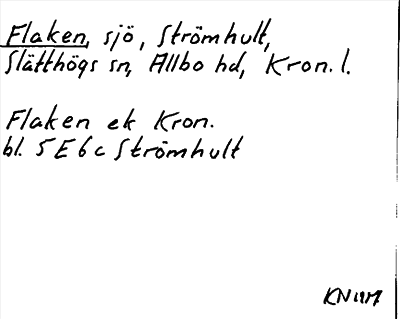 Flaken, sjö, Strömhult,
Slätthögs sn, Allbo hd, Kron. l.
Flaken ek Kron.
bl. 5E6c Strömhult